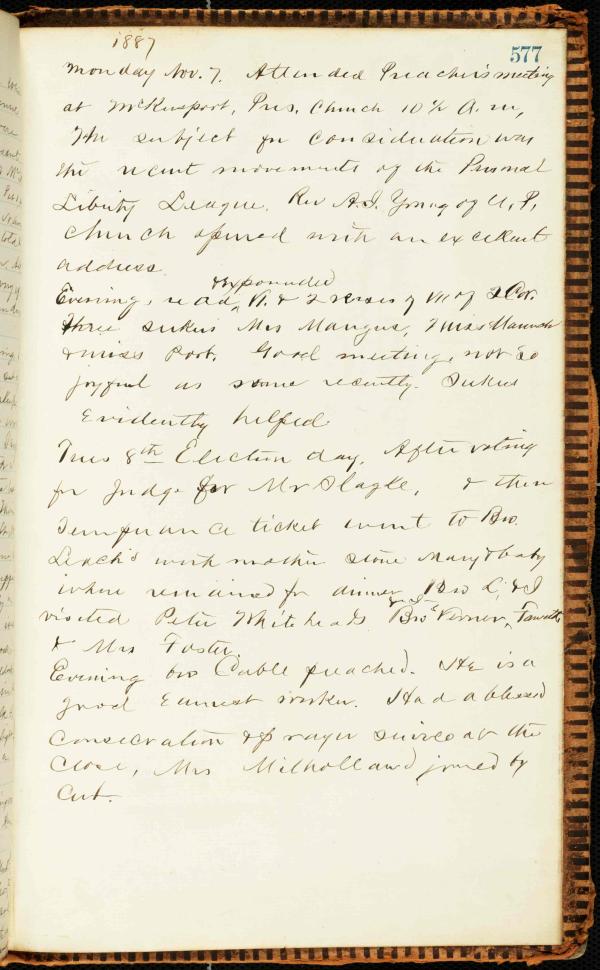 1887
577
Monday Nov. 7. Attended Preacher's meeting
at McKeesport, Pres. Church 10 1/2 A. m.,
The subject for consideration was
the recent movements of the Personal
Liberty League. Rev A. I. Young of U. P.
Church opened with an excellent
address.
& expounded
Evening, read, & 2 verses of of 2 Cor.
Three seekers Mrs Mangus, Miss
& miss Post. Good meeting, not so
joyful as some recently. Seekers
Evidently helped
Tues 8th Election day. After voting
for Judge for Mr Slagle, & then
Temperance ticket went to Bro.
Leach's with mother stone Mary & baby
where remained for dinner, Bro L. & I
visited Peter Whiteheads Bro's Verner,
& Mrs Foster.
Evening bro Cable preached. He is a
good Earnest worker. Had a blessed
Consecration & prayer service at the
Close, Mrs Milholland joined by
Cert.